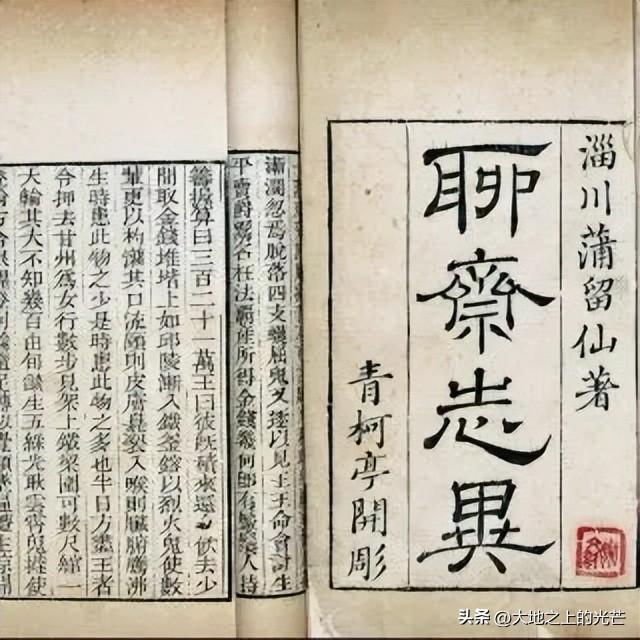 淄川蒲留仙著
聊齋志異
青柯亭開彫
瀾忽焉脫落四支攣屈鬼又逐以見王王命會計生
平賣爵鬻名枉法霸產所得金錢幾何卽有人持
籌握算曰三百二十一萬王曰彼旣積來還去少
間取金錢堆堦上如邱陵漸入鐵釜鎔以烈火鬼使數
輩更以杓灌其口流頤則皮膚臭裂入喉則臟腑騰沸
生時患此物之少是時患此物之多也半日方盡王者
令押去甘州爲女行數步見架上鐵梁圍可數尺綰一
大輪其大不知幾百由旬燄生五綵光耿雲霄鬼撻使
头条 @大地之上的光芒